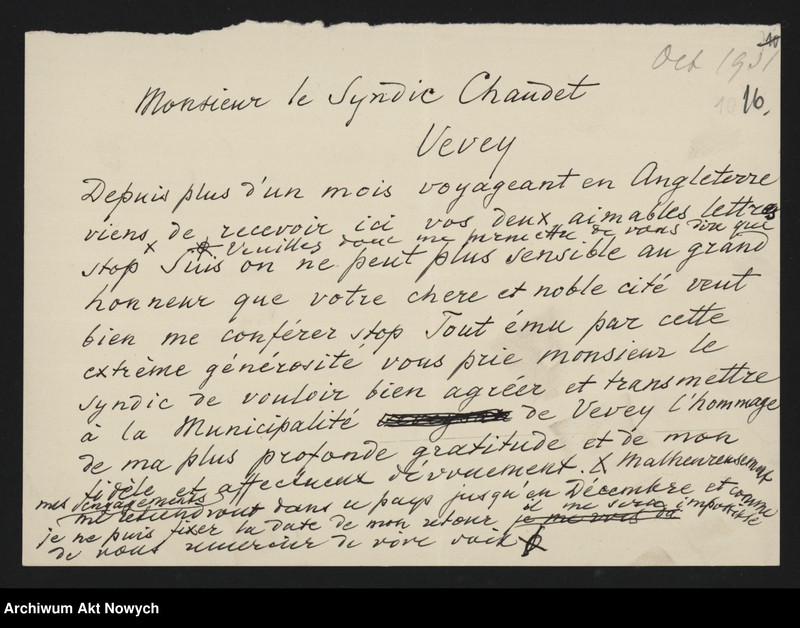 Oct 1931
16.
Monsieur le Syndic Chaudet
Vevey
Depuis plus d'un mois voyageant en Angleterre
viens de recevoir ici vos deux aimables lettres
x Veuillez donc me permettre de vous dire que
stop Suis on ne peut plus sensible au grand
honneur que votre chere et noble cité veut
bien me conférer stop Tout ému par cette
extrème générosité vous prie monsieur le
syndic de vouloir bien agréer et transmettre
à la Municipalité de Vevey l'hommage
de ma plus profonde gratitude et de mon
fidèle et affectueux dévouement. X Malheureusement
mes engagements
me retiendront dans ce pays jusqu'en Décembre et comme
il me sera impossible
je ne puis fixer la date de mon retour je me vois
de vous remercier de vive voix
Archiwum Akt Nowych